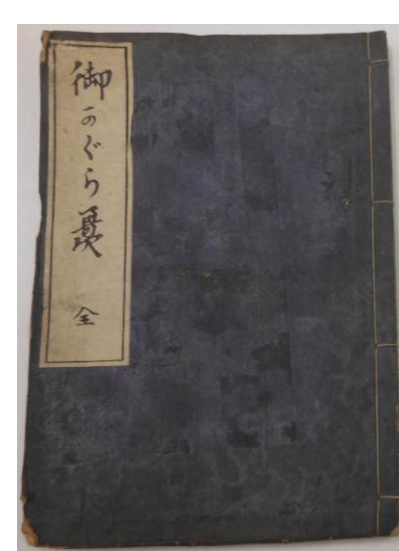 御かぐら歌 全